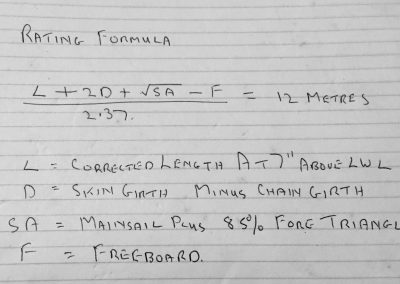 RATING FORMULA
L + 2D + √SA - F
2.37.
= 12 METRES
L = CORRECTED LENGTH AT 7" ABOVE LWL
D = SKIN GIRTH MINUS CHAIN GIRTH
SA = MAINSAIL PLUS 85% FORE TRIANGL
F = FREEBOARD.